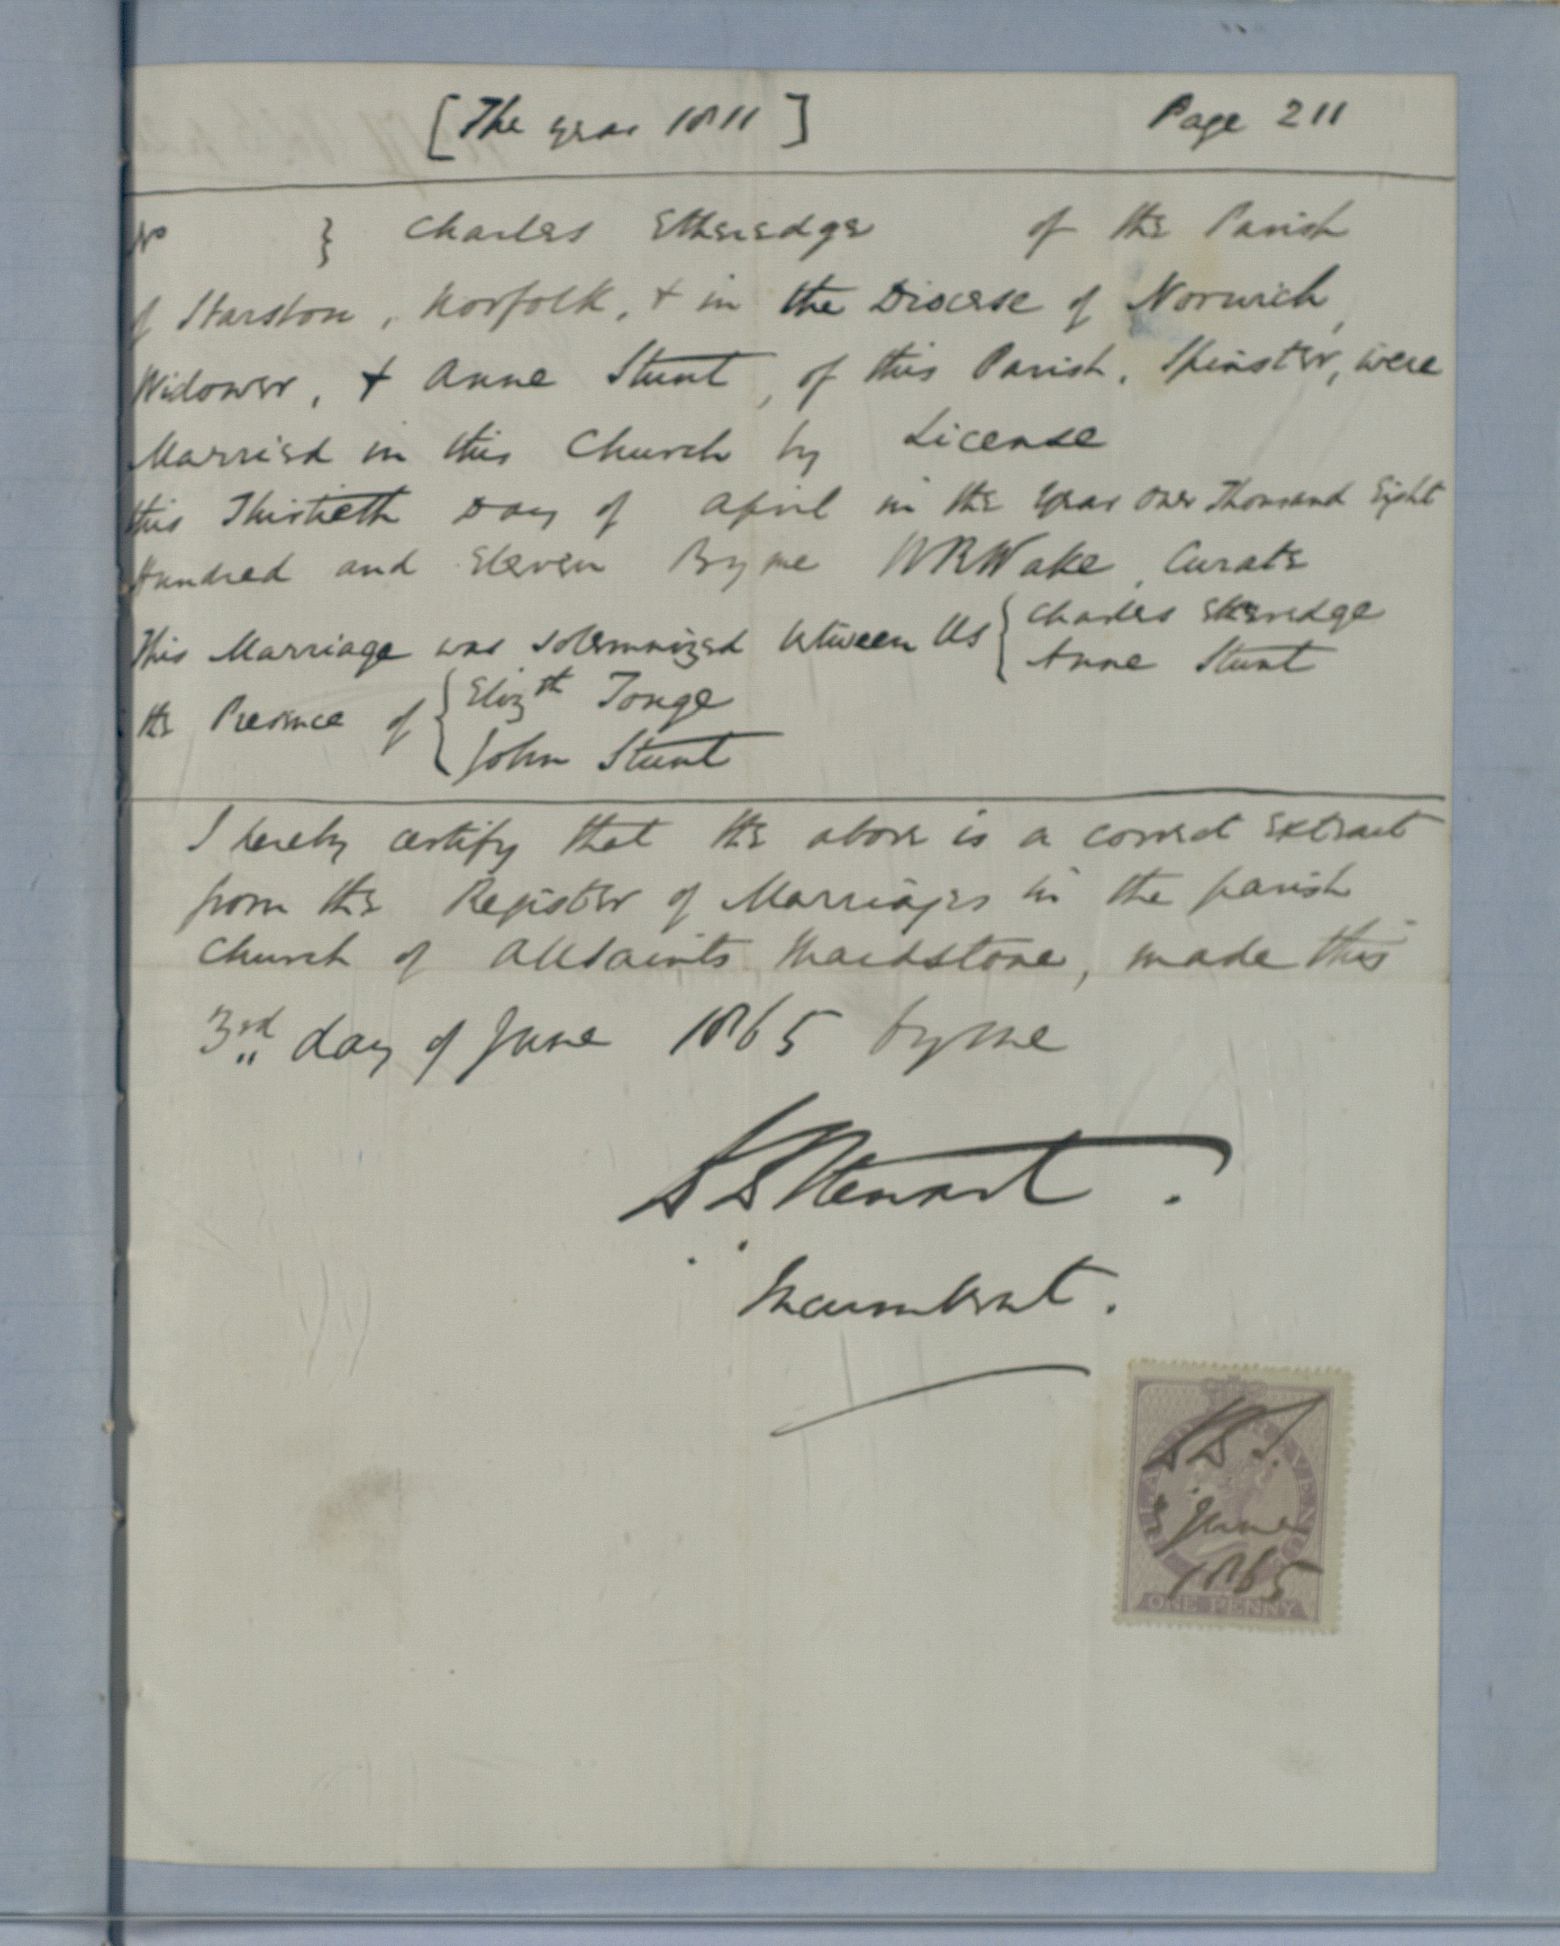 [The year 1811] Page 211
No } Charles Etheredge of the Parish
of Starston, Norfolk, & in the Diocese of Norwich,
Widower, & Anne Stunt, of this Parish, Spinster, were
Married in this Church by License
this Thirtieth Day of April in the Year One Thousand Eight
Hundred and Eleven By me WRWake, Curate
This Marriage was solemnized between Us { Charles Etheredge
Anne Stunt
the Presence of { Elizth Tonge
John Stunt
I hereby certify that the above is a correct extract
from the Register of Marriages in the parish
Church of Allsaints Maidstone, made this
3rd day of June 1865 by me
D D Stewart.
Incumbent.
INLAND REVENUE
D D S.
3 June
1865
ONE PENNY